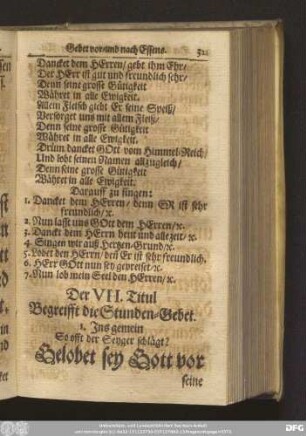 Gebet vor und nach Essens. 52.
Dancket dem HErren / gebt ihm Ehr /
Der HErr ist gut und freundlich sehr /
Denn seine grosse Gütigkeit
Währet in alle Ewigkeit.
Allem Fleisch giebt Er seine Speiß /
Versorget uns mit allem Fleiß /
Denn seine grosse Gütigkeit
Währet in alle Ewigkeit.
Drüm dancket GOtt vom Himmel-Reich /
Und lobt seinen Namen allzugleich /
Denn seine grosse Gütigkeit
Währet in alle Ewigkeit.
Darauff zu singen:
1. Dancket dem HErren / denn ER ist sehr
freundlich / ꝛc.
2. Nun last uns GOtt dem HErren / ꝛc.
3. Danckt dem HErrn heut und allezeit / ꝛc.
4. Singen wir auß Hertzen-Grund / ꝛc.
5. Lobet den HErrn / deñ Er ist sehr freundlich.
6. HErr GOtt nun sey gepreiset / ꝛc.
7. Nun lob mein Seel den HErren / ꝛc.
Der VII. Titul
Begreifft die Stunden-Gebet.
1. Ins gemein
So offt der Seyger schlägt?
Gelobet sey Gott vor
seine